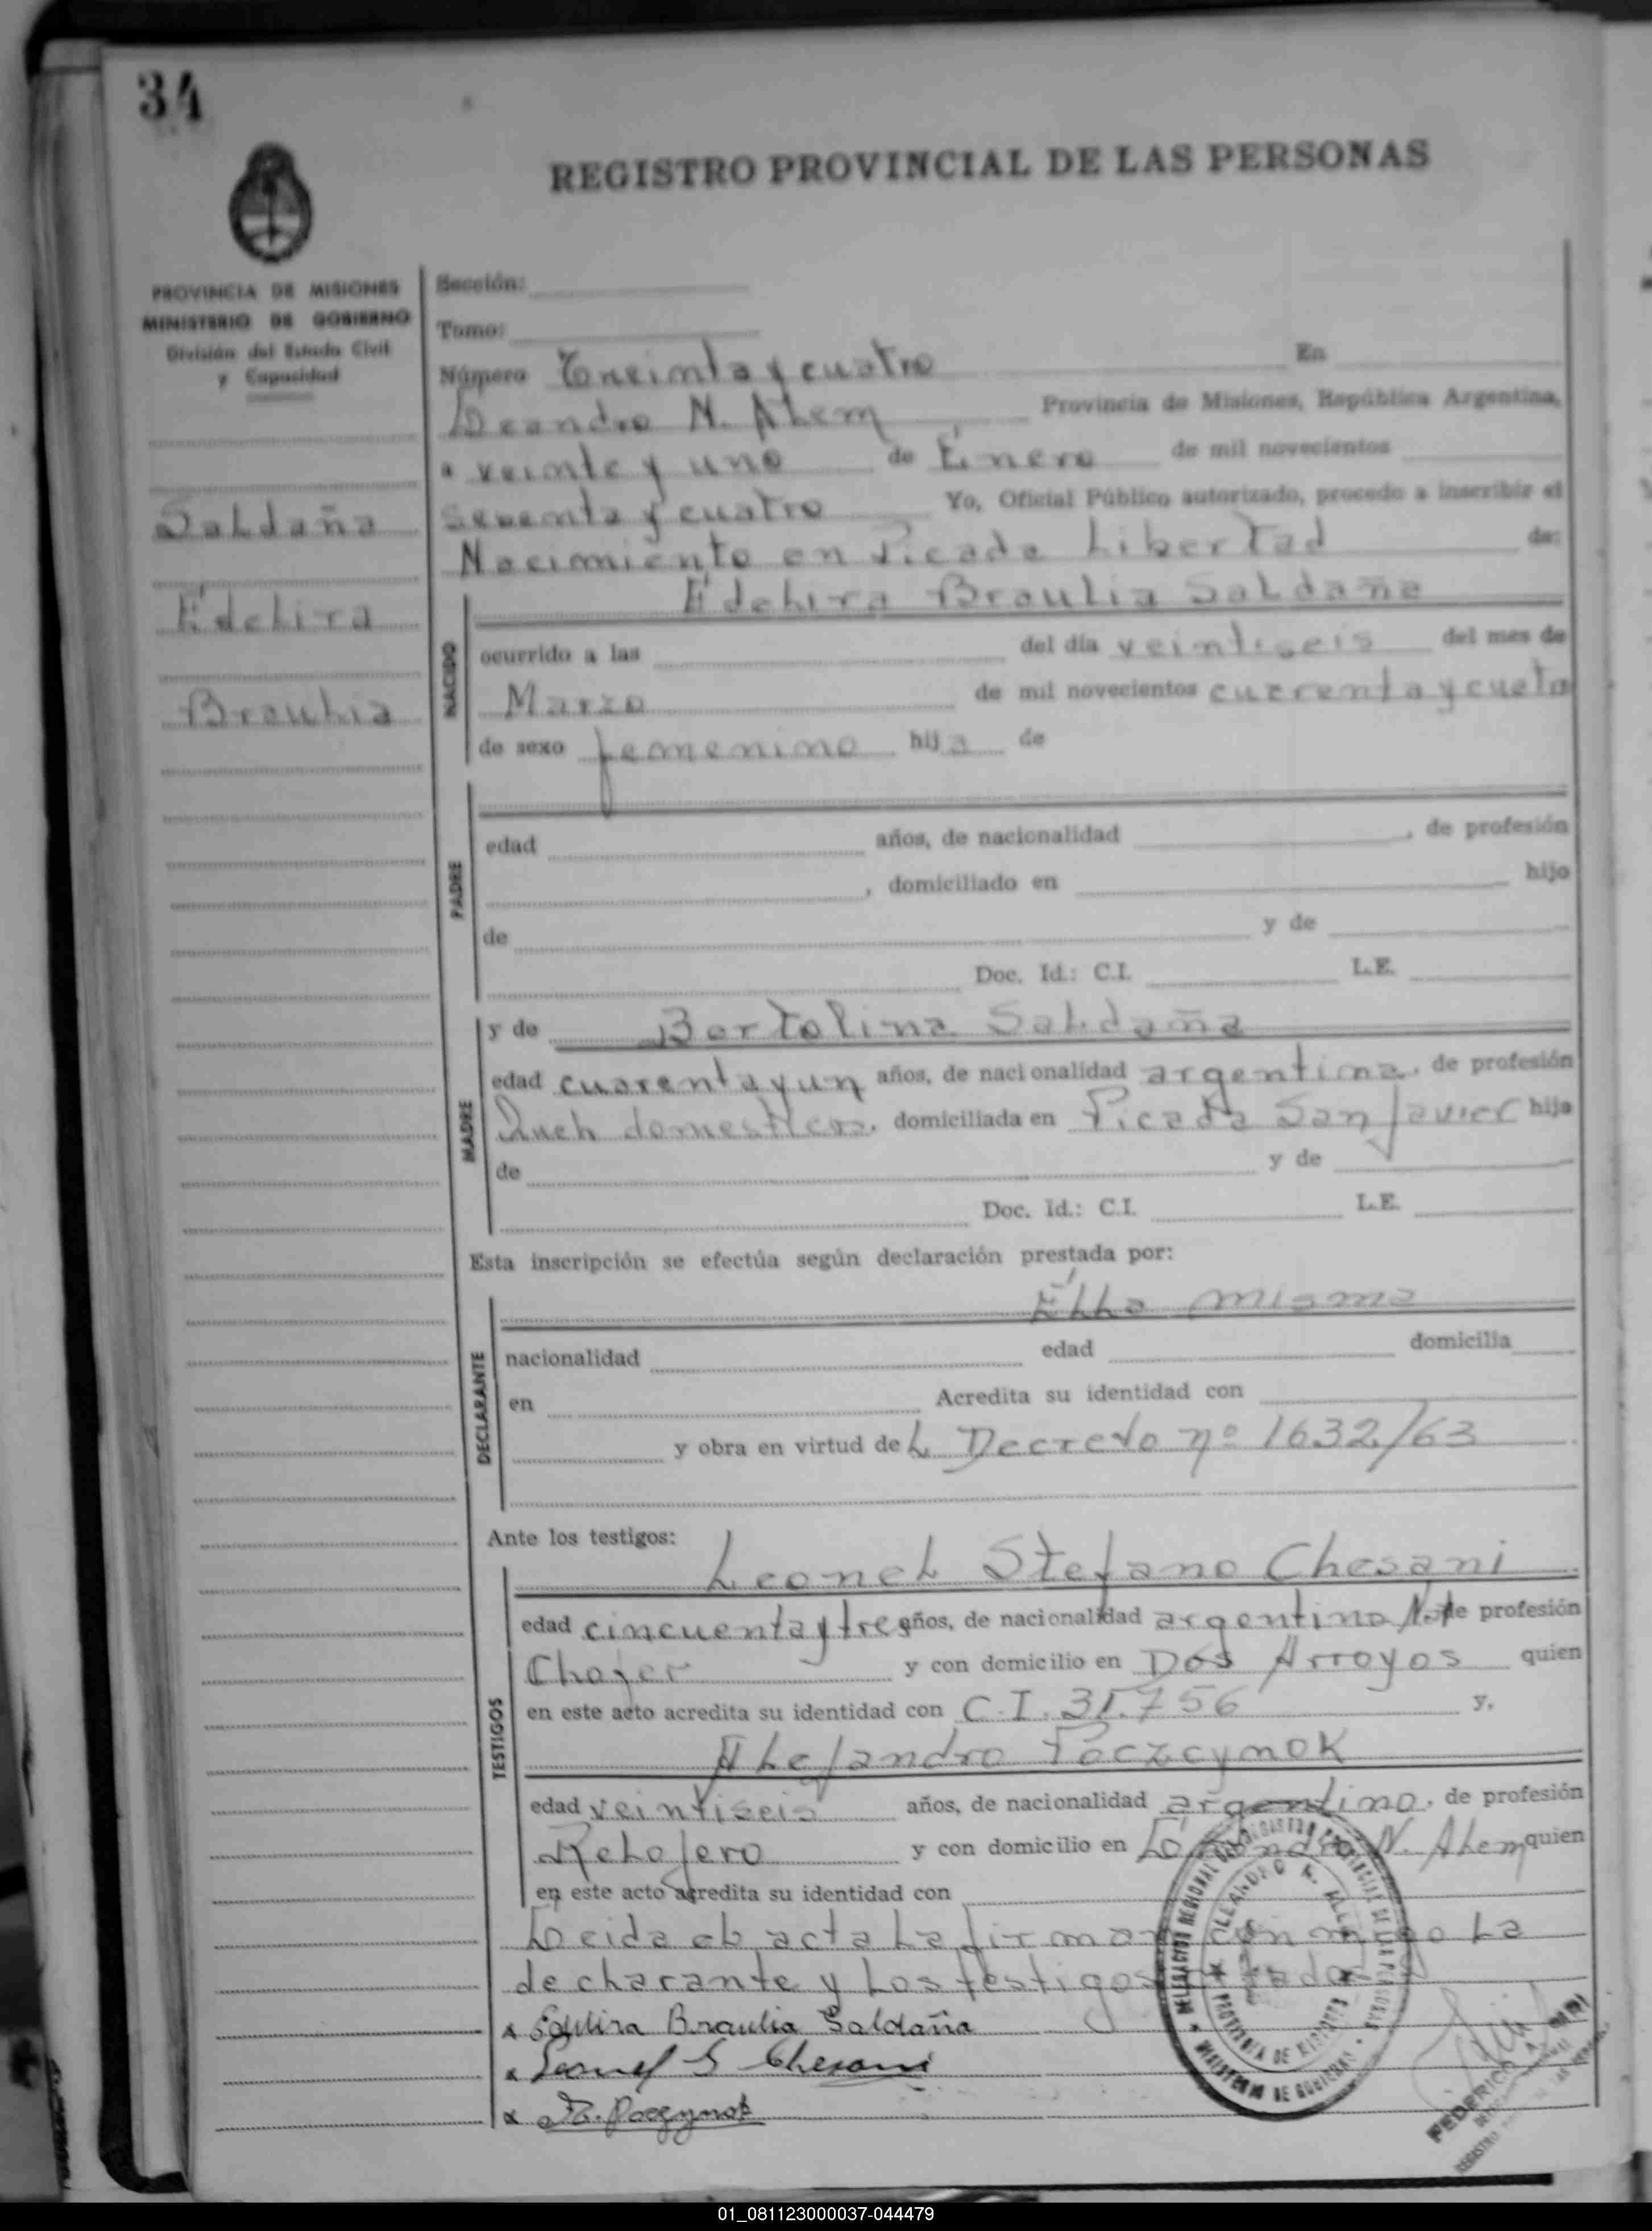 34
REGISTRO PROVINCIAL DE LAS PERSONAS
PROVINCIA DE MISIONES
MINISTERIO DE GOBIERNO
División del Estado Civil
y Capacidad
Saldaña
Édelira
Braulia
Sección:
Tomo:
Número Treinta y cuatro En
Leandro N. Alem Provincia de Misiones, República Argentina,
a veinte y uno de Énero de mil novecientos
setenta y cuatro Yo, Oficial Público autorizado, procedo a inscribir el
Nacimiento en Picada Libertad de:
Édelira Braulia Saldaña
NACIDO
ocurrido a las del día veintiseis del mes de
Marzo de mil novecientos cuarenta y
de sexo femenino hija de
PADRE
edad años, de nacionalidad , de profesión
, domiciliado en hijo
de y de
Doc. Id.: C.I. L.E.
MADRE
y de Bertolina Saldaña
edad cuarenta y un años, de nacionalidad argentina, de profesión
domiciliada en Picada San Javier hija
de y de
Doc. Id.: C.I. L.E.
Esta inscripción se efectúa según declaración prestada por:
Élla misma
DECLARANTE
nacionalidad edad domicilia
en Acredita su identidad con
y obra en virtud del Decreto nº 1632/63
Ante los testigos:
TESTIGOS
Leonel Stefano Chesani
edad cincuenta y tres años, de nacionalidad argentino de profesión
Chofer y con domicilio en Dos Arroyos quien
en este acto acredita su identidad con C.I. 31.756 y,
Alejandro Poczcynok
edad veintiseis años, de nacionalidad argentino, de profesión
Relojero y con domicilio en Leandro N. Alem quien
en este acto acredita su identidad con
Leida el acta la firman conmigo la
declarante y los testigos citados
x Edelira Braulia Saldaña
x Leonel S Chesani
x
LEANDRO N. ALEM
PROVINCIA DE MISIONES
MINISTERIO DE GOBIERNO
FEDERICO
01_081123000037-044479